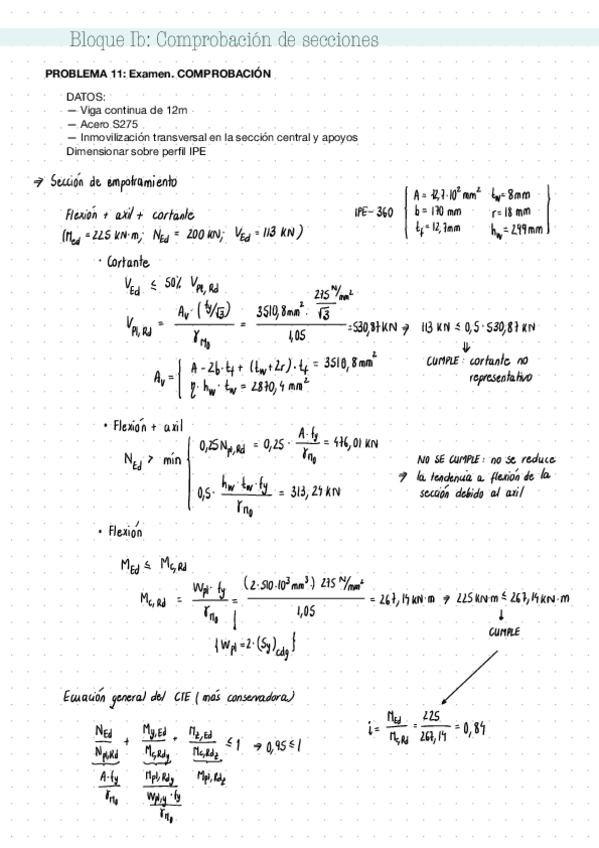 Bloque Ib: Comprobación de secciones
PROBLEMA 11: Examen. COMPROBACIÓN
DATOS:
— Viga continua de 12m
— Acero S275
— Inmovilización transversal en la sección central y apoyos
Dimensionar sobre perfil IPE
→ Sección de empotramiento
Flexión + axil + cortante
(M_ed = 225 KN·m; N_Ed = 200 KN; V_Ed = 113 KN)
IPE-360
A = 72,7·10² mm² t_w = 8mm
b = 170 mm r = 18 mm
t_f = 12,7mm h_w = 299mm
• Cortante
V_Ed ≤ 50% V_Pl,Rd
V_Pl,Rd = A_v · (f_y/√3) / γ_M0 = 3510,8mm² · 275 N/mm² / √3 / 1,05 = 530,87 KN → 113 KN ≤ 0,5 · 530,87 KN
↓
CUMPLE: cortante no
representativo
A_v = { A - 2b · t_f + (t_w + 2r) · t_f = 3510,8 mm²
η · h_w · t_w = 2870,4 mm²
• Flexión + axil
N_Ed > mín
0,25 N_pl,Rd = 0,25 · A · f_y / γ_M0 = 476,01 KN
0,5 · h_w · t_w · f_y / γ_M0 = 313,24 KN
NO SE CUMPLE: no se reduce
→ la tendencia a flexión de la
sección debido al axil
• Flexión
M_Ed ≤ M_c,Rd
M_c,Rd = W_pl · f_y / γ_M0 = (2·510·10³ mm³) 275 N/mm² / 1,05 = 267,14 kN·m → 225 KN·m ≤ 267,14 KN·m
↓
CUMPLE
{W_pl = 2·(S_y)_cdg}
Ecuación general del CTE (más conservadora)
i = M_Ed / M_c,Rd = 225 / 267,14 = 0,84
N_Ed / N_pl,Rd + M_y,Ed / M_c,Rdy + M_z,Ed / M_c,Rdz ≤ 1 → 0,95 ≤ 1
A · f_y / γ_M0 M_pl,Rdy M_pl,Rdz
W_pl,y · f_y / γ_M0